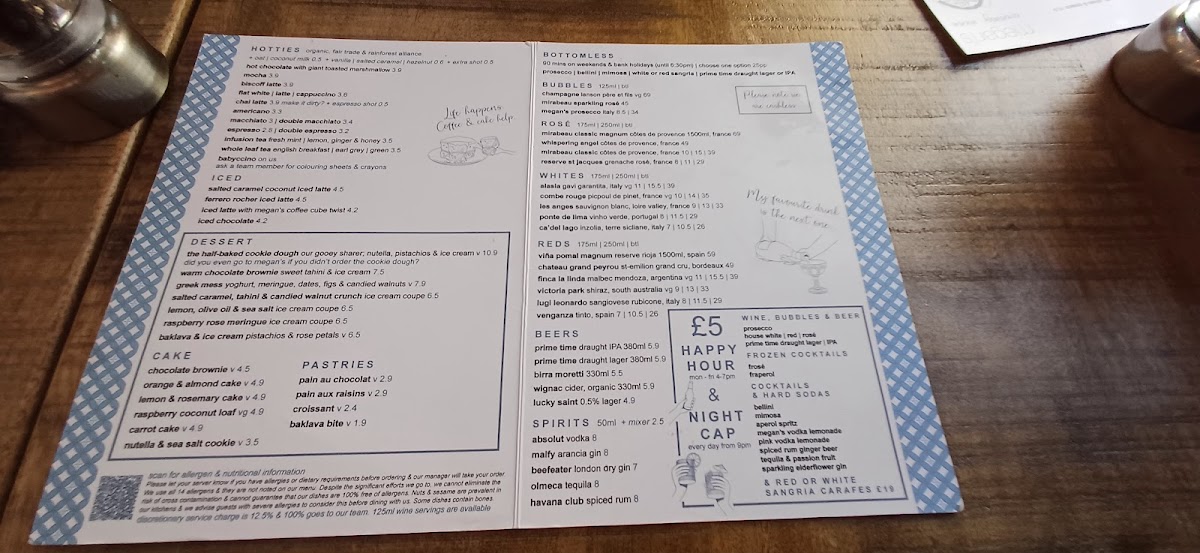 HOTTIES organic, fair trade & rainforest alliance
+ oat | coconut milk 0.5 + vanilla | salted caramel | hazelnut 0.6 + extra shot 0.5
hot chocolate with giant toasted marshmallow 3.9
mocha 3.9
biscoff latte 3.9
flat white | latte | cappuccino 3.6
chai latte 3.9 make it dirty? + espresso shot 0.5
americano 3.3
macchiato 3 | double macchiato 3.4
espresso 2.8 | double espresso 3.2
infusion tea fresh mint | lemon, ginger & honey 3.5
whole leaf tea english breakfast | earl grey | green 3.5
babyccino on us
ask a team member for colouring sheets & crayons
Life happens.
Coffee & cake help.
ICED
salted caramel coconut iced latte 4.5
ferrero rocher iced latte 4.5
iced latte with megan's coffee cube twist 4.2
iced chocolate 4.2
DESSERT
the half-baked cookie dough our gooey sharer; nutella, pistachios & ice cream v 10.9
did you even go to megan's if you didn't order the cookie dough?
warm chocolate brownie sweet tahini & ice cream 7.5
greek mess yoghurt, meringue, dates, figs & candied walnuts v 7.9
salted caramel, tahini & candied walnut crunch ice cream coupe 6.5
lemon, olive oil & sea salt ice cream coupe 6.5
raspberry rose meringue ice cream coupe 6.5
baklava & ice cream pistachios & rose petals v 6.5
CAKE
chocolate brownie v 4.5
orange & almond cake v 4.9
lemon & rosemary cake v 4.9
raspberry coconut loaf vg 4.9
carrot cake v 4.9
nutella & sea salt cookie v 3.5
PASTRIES
pain au chocolat v 2.9
pain aux raisins v 2.9
croissant v 2.4
baklava bite v 1.9
scan for allergen & nutritional information
Please let your server know if you have allergies or dietary requirements before ordering & our manager will take your order
We use all 14 allergens & they are not noted on our menu. Despite the significant efforts we go to, we cannot eliminate the
risk of cross contamination & cannot guarantee that our dishes are 100% free of allergens. Nuts & sesame are prevalent in
our kitchens & we advise guests with severe allergies to consider this before dining with us. Some dishes contain bones
discretionary service charge is 12.5% & 100% goes to our team. 125ml wine servings are available
BOTTOMLESS
90 mins on weekends & bank holidays (until 6:30pm) | choose one option 25pp
prosecco | bellini | mimosa | white or red sangria | prime time draught lager or IPA
BUBBLES 125ml | btl
champagne lanson père et fils vg 69
mirabeau sparkling rosé 45
megan's prosecco italy 6.5 | 34
ROSÉ 175ml | 250ml | btl
mirabeau classic magnum côtes de provence 1500ml, france 69
whispering angel côtes de provence, france 49
mirabeau classic côtes de provence, france 10 | 15 | 39
reserve st jacques grenache rosé, france 8 | 11 | 29
WHITES 175ml | 250ml | btl
alasia gavi garantita, italy vg 11 | 15.5 | 39
combe rouge picpoul de pinet, france vg 10 | 14 | 35
les anges sauvignon blanc, loire valley, france 9 | 13 | 33
ponte de lima vinho verde, portugal 8 | 11.5 | 29
ca'del lago inzolia, terre siciliane, italy 7 | 10.5 | 26
My favourite drink
is the next one
REDS 175ml | 250ml | btl
viña pomal magnum reserve rioja 1500ml, spain 59
chateau grand peyrou st-emilion grand cru, bordeaux 49
finca la linda malbec mendoza, argentina vg 11 | 15.5 | 39
victoria park shiraz, south australia vg 9 | 13 | 33
lugi leonardo sangiovese rubicone, italy 8 | 11.5 | 29
venganza tinto, spain 7 | 10.5 | 26
BEERS
prime time draught IPA 380ml 5.9
prime time draught lager 380ml 5.9
birra moretti 330ml 5.5
wignac cider, organic 330ml 5.9
lucky saint 0.5% lager 4.9
SPIRITS 50ml + mixer 2.5
absolut vodka 8
malfy arancia gin 8
beefeater london dry gin 7
olmeca tequila 8
havana club spiced rum 8
£5
HAPPY
HOUR
mon - fri 4-7pm
&
NIGHT
CAP
every day from 9pm
WINE, BUBBLES & BEER
prosecco
house white | red | rosé
prime time draught lager | IPA
FROZEN COCKTAILS
frosé
fraperol
COCKTAILS
& HARD SODAS
bellini
mimosa
aperol spritz
megan's vodka lemonade
pink vodka lemonade
spiced rum ginger beer
tequila & passion fruit
sparkling elderflower gin
& RED OR WHITE
SANGRIA CARAFES £19